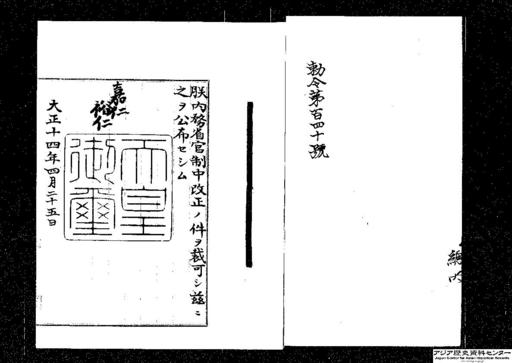 勅令第百四十號
朕内務省官制中改正ノ件ヲ裁可シ茲ニ
之ヲ公布セシム
嘉仁
裕仁
天皇
御璽
大正十四年四月二十五日
アジア歴史資料センター
Japan Center for Asian Historical Records